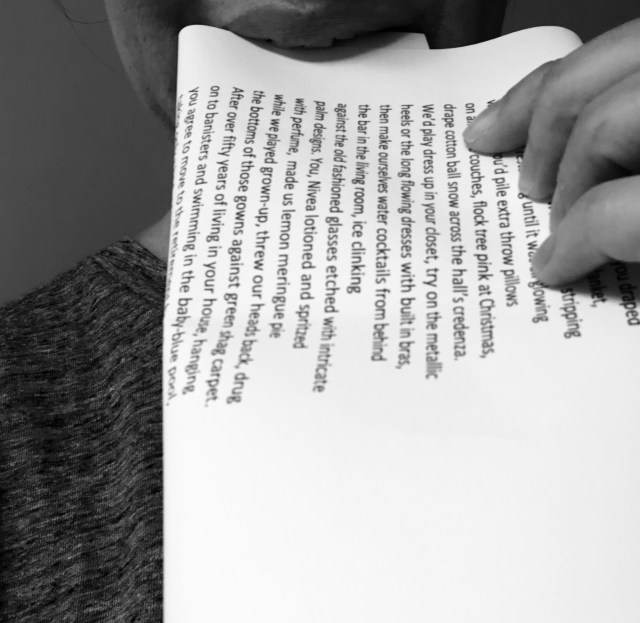 you draped
blanket,
stripping
until it was glowing
you'd pile extra throw pillows
on couches, flock tree pink at Christmas,
drape cotton ball snow across the hall's credenza.
We'd play dress up in your closet, try on the metallic
heels or the long flowing dresses with built in bras,
then make ourselves water cocktails from behind
the bar in the living room, ice clinking
against the old fashioned glasses etched with intricate
palm designs. You, Nivea lotioned and spritzed
with perfume, made us lemon meringue pie
while we played grown-up, threw our heads back, drug
the bottoms of those gowns against green shag carpet.
After over fifty years of living in your house, hanging
on to banisters and swimming in the baby-blue pool,
you agree to move to the retirement